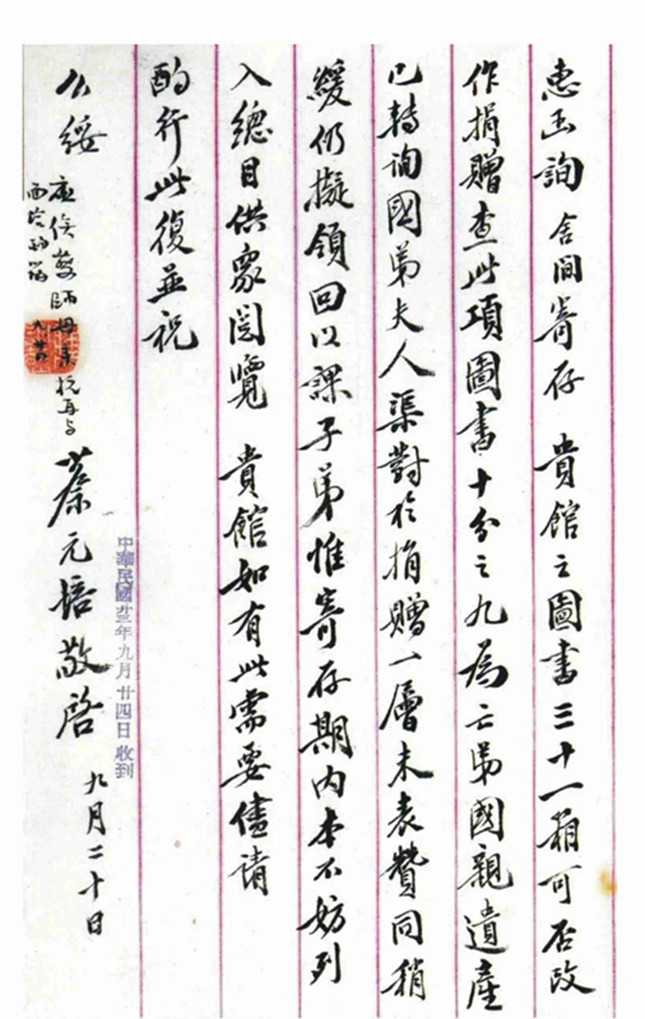 惠函詢 舍間寄存 貴館之圖書三十一箱可否改
作捐贈查此項圖書十分之九為亡弟國親遺產
已轉詢國弟夫人渠對於捐贈一層未表贊同稍
緩仍擬領回以課子弟惟寄存期內本不妨列
入總目供眾閱覽 貴館如有此需要儘請
酌行此復並祝
公綏 蔡元培敬啓 九月二十日
中華民國廿三年九月廿四日收到
應俟蔡師母來杭再与
面洽 九、廿四